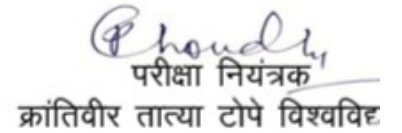 Choudhy
परीक्षा नियंत्रक
क्रांतिवीर तात्या टोपे